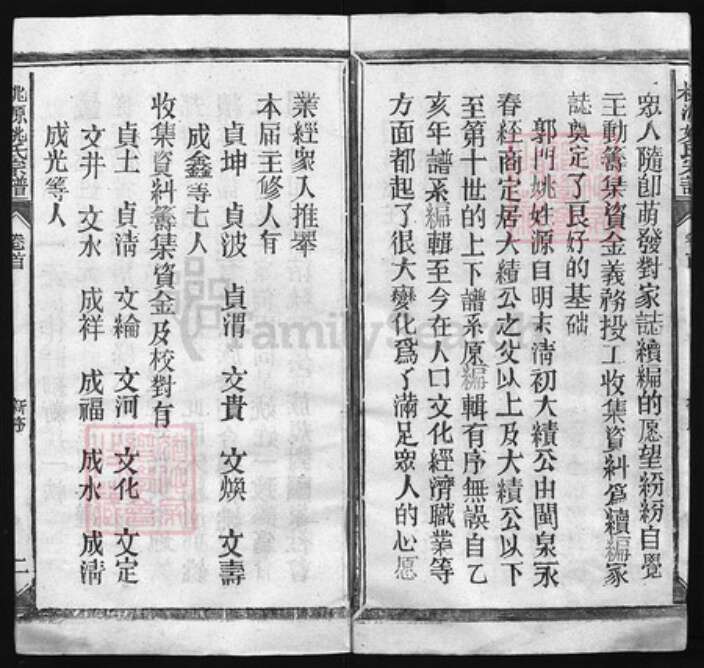 眾人隨即萌發對家誌續編的愿望紛紛自覺
主動籌集資金義務投工收集資料為續編家
誌奠定了良好的基础
郭門姚姓源自明末清初大績公由閩泉永
春經商定居大績公之父以上及大績公以下
至第十世的上下譜系原編輯有序無誤自乙
亥年譜系編輯至今在人口文化經濟職業等
方面都起了很大變化爲了滿足眾人的心愿
業經眾人推舉
本届主修人有
貞坤 貞波 貞渭 文貴 文煥 文壽
成鑫等七人
收集資料籌集資金及校對有
貞土 貞清 文綸 文河 文化 文定
文井 文水 成祥 成福 成水 成清
成光等人
桃源姚氏宗譜 卷首 新序 二
FamilySearch